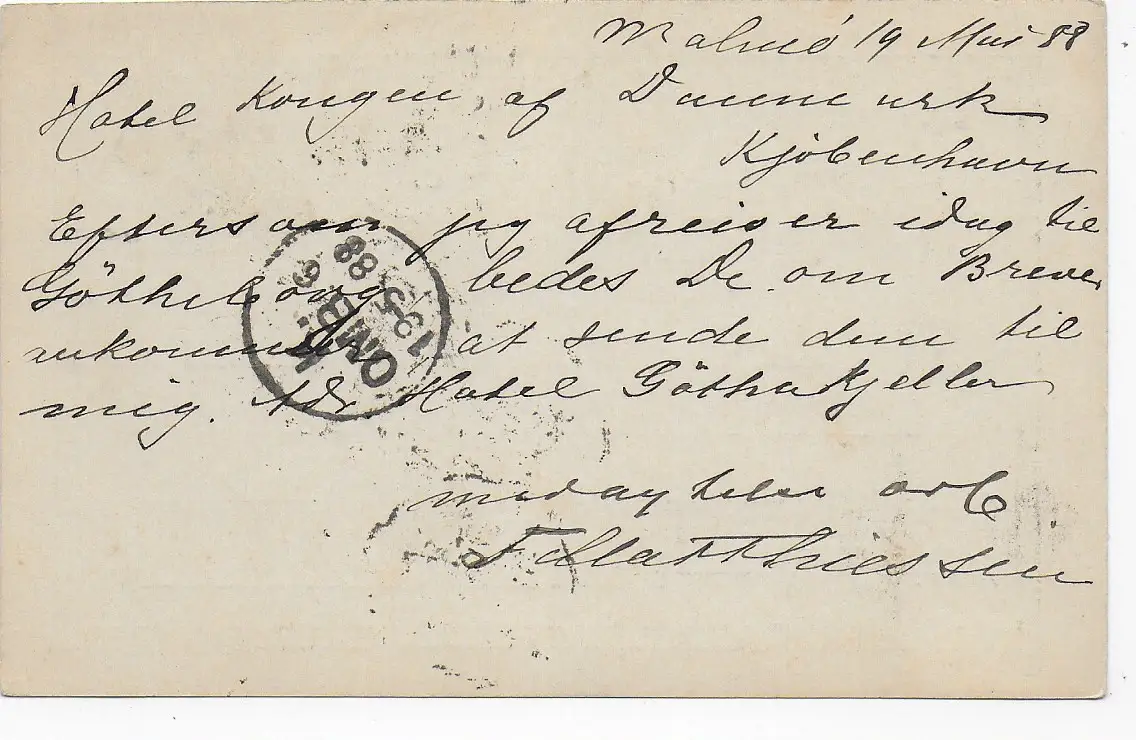 Malmö 19 Mai 88
Hotel Kongen af Dannemark
Kjöbenhavn
Eftersom jeg afreiser idag til
Götheborg bedes De om Breve
ankommer at sende dem til
mig. Adr. Hotel Götha Kjeller
med agtelse
F Matthiessen
K.
OMB 6
19 5 88